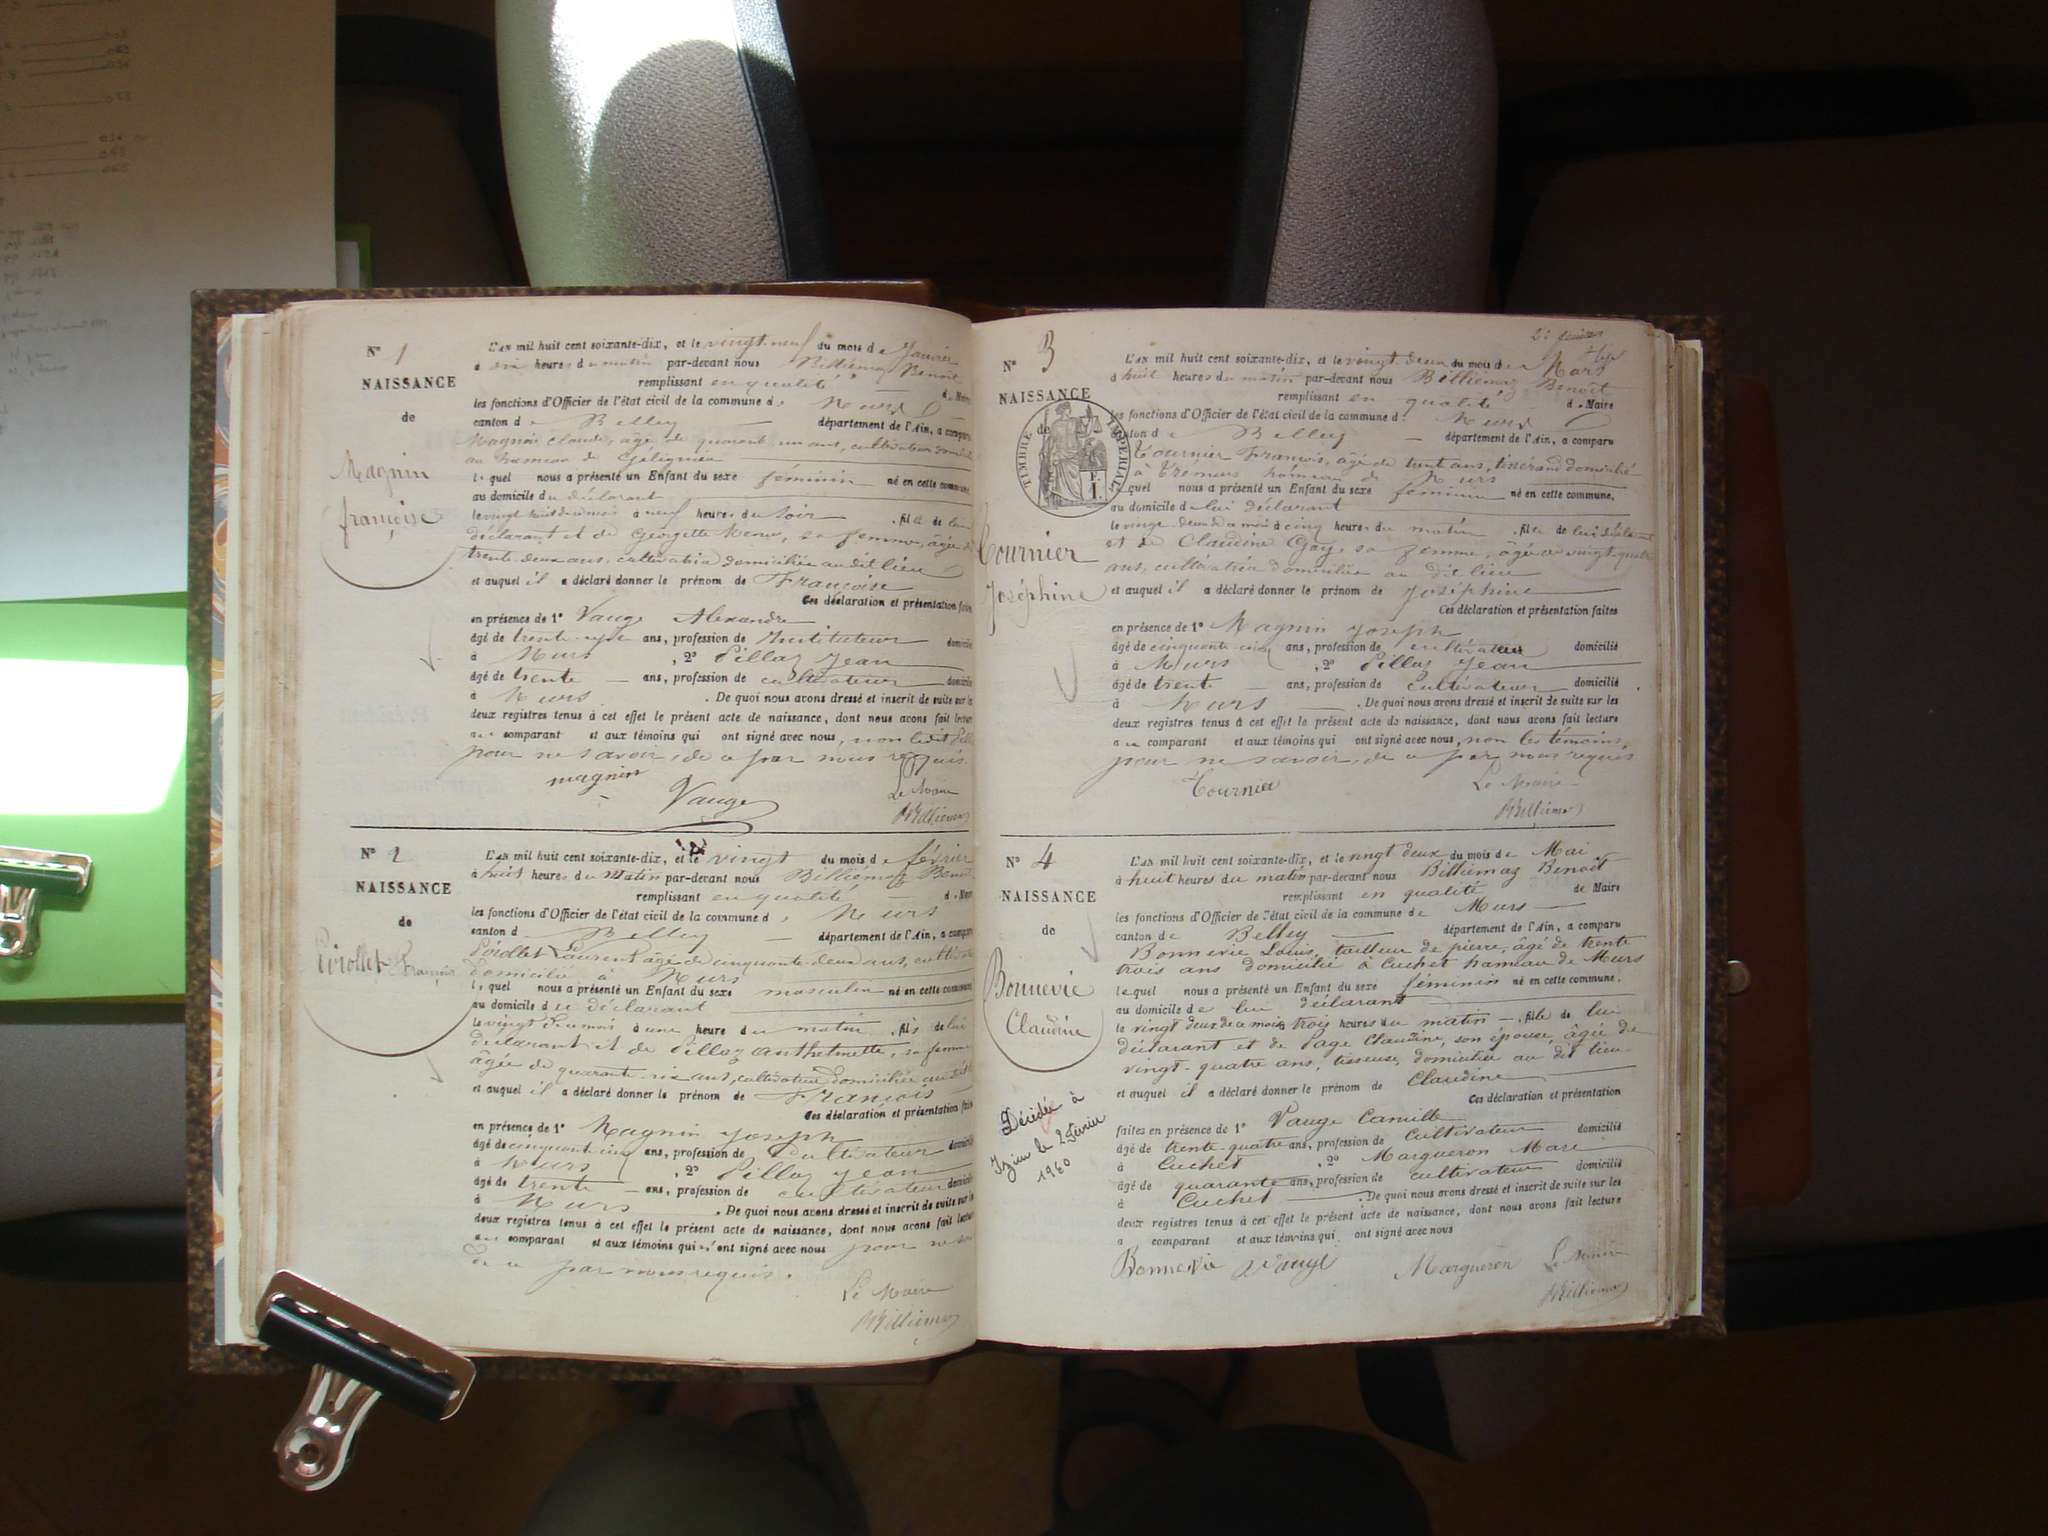 N° 1
NAISSANCE
de
Magnin
françoise
L'AN mil huit cent soixante-dix, et le vingt neuf du mois de Janvier
à dix heures du matin par-devant nous Billiemaz Benoît
remplissant en qualité de Maire
les fonctions d'Officier de l'état civil de la commune de Murs
canton de Belley département de l'Ain, a comparu
Magnin Claude, âgé de quarante un ans, cultivateur domicilié
au hameau de
lequel nous a présenté un Enfant du sexe féminin né en cette commune
au domicile du déclarant
le vingt huit du mois à neuf heures du soir fille de lui
déclarant et de Georgette sa femme, âgée de
trente deux ans, cultivatrice domiciliée au dit lieu
et auquel il a déclaré donner le prénom de Françoise
Ces déclaration et présentation faites
en présence de 1° Vauge Alexandre
âgé de trente-sept ans, profession de Instituteur domicilié
à Murs , 2° Pillaz Jean
âgé de trente ans, profession de cultivateur domicilié
à Murs . De quoi nous avons dressé et inscrit de suite sur les
deux registres tenus à cet effet le présent acte de naissance, dont nous avons fait lecture
au comparant et aux témoins qui ont signé avec nous, non ledit Pillaz
pour ne savoir, de ce par nous requis.
magnin
Vauge
Le Maire
Billiemaz
N° 2
NAISSANCE
de
Pirollet François
L'AN mil huit cent soixante-dix, et le vingt du mois de février
à huit heures du matin par-devant nous Billiemaz Benoît
remplissant en qualité de Maire
les fonctions d'Officier de l'état civil de la commune de Murs
canton de Belley département de l'Ain, a comparu
Pirollet Laurent âgé de cinquante-deux ans, cultivateur
domicilié à Murs
lequel nous a présenté un Enfant du sexe masculin né en cette commune
au domicile du déclarant
le vingt du mois à une heure du matin fils de lui
déclarant et de Pillaz anthelmette, sa femme
âgée de quarante-six ans, cultivateur domiciliée au dit
et auquel il a déclaré donner le prénom de François
Ces déclaration et présentation faites
en présence de 1° Magnin Joseph
âgé de cinquante-cinq ans, profession de Cultivateur domicilié
à Murs , 2° Pillaz Jean
âgé de trente ans, profession de cultivateur domicilié
à Murs . De quoi nous avons dressé et inscrit de suite sur les
deux registres tenus à cet effet le présent acte de naissance, dont nous avons fait lecture
au comparant et aux témoins qui n'ont signé avec nous pour ne savoir
de ce par nous requis.
Le Maire
Billiemaz
N° 3
NAISSANCE
de
TIMBRE IMPERIAL
Tournier
Joséphine
L'AN mil huit cent soixante-dix, et le vingt-deux du mois de Mars
à huit heures du matin par-devant nous Billiemaz Benoît
remplissant en qualité de Maire
les fonctions d'Officier de l'état civil de la commune de Murs
canton de Belley département de l'Ain, a comparu
Tournier François, âgé de trente ans, tisserand domicilié
à hameau de Murs
lequel nous a présenté un Enfant du sexe féminin né en cette commune,
au domicile de lui déclarant
le vingt-deux de ce mois à cinq heures du matin fille de lui déclarant
et de Claudine Gay, sa femme, âgée de vingt-quatre
ans, cultivatrice domiciliée au dit lieu
et auquel il a déclaré donner le prénom de Joséphine
Ces déclaration et présentation faites
en présence de 1° Magnin Joseph
âgé de cinquante-cinq ans, profession de cultivateur domicilié
à Murs , 2° Pillaz Jean
âgé de trente ans, profession de Cultivateur domicilié
à Murs . De quoi nous avons dressé et inscrit de suite sur les
deux registres tenus à cet effet le présent acte de naissance, dont nous avons fait lecture
au comparant et aux témoins qui ont signé avec nous, non les témoins,
pour ne savoir, de ce par nous requis
Tournier
Le Maire
Billiemaz
N° 4
NAISSANCE
de
Bonnevie
Claudine
Décédée à
Izieu le 2 Février
1960
L'AN mil huit cent soixante-dix, et le vingt deux du mois de Mai
à huit heures du matin par-devant nous Billiemaz Benoît
remplissant en qualité de Maire
les fonctions d'Officier de l'état civil de la commune de Murs
canton de Belley département de l'Ain, a comparu
Bonnevie Louis, tailleur de pierre, âgé de trente
trois ans domicilié à Cuchet hameau de Murs
lequel nous a présenté un Enfant du sexe féminin né en cette commune.
au domicile de lui déclarant
le vingt deux de ce mois trois heures du matin fille de lui
déclarant et de Page Claudine, son épouse, âgée de
vingt-quatre ans, tisseuse, domiciliée au dit lieu
et auquel il a déclaré donner le prénom de Claudine
Ces déclaration et présentation
faites en présence de 1° Vauge Camille
âgé de trente-quatre ans, profession de Cultivateur domicilié
à Cuchet , 2° Margueron Marc
âgé de quarante ans, profession de cultivateur domicilié
à Cuchet . De quoi nous avons dressé et inscrit de suite sur les
deux registres tenus à cet effet le présent acte de naissance, dont nous avons fait lecture
a comparant et aux témoins qui ont signé avec nous
Bonnevie Vauge Margueron Le Maire
Billiemaz